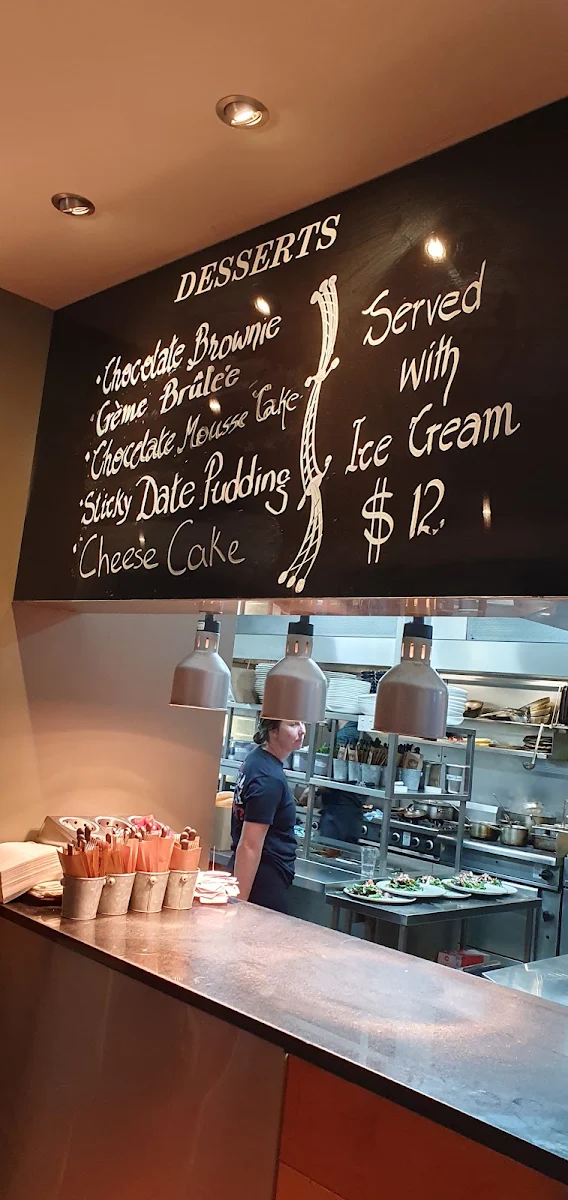 DESSERTS
• Chocolate Brownie
• Crème Brûlée
• Chocolate Mousse Cake
• Sticky Date Pudding
• Cheese Cake
Served
With
Ice Cream
$12